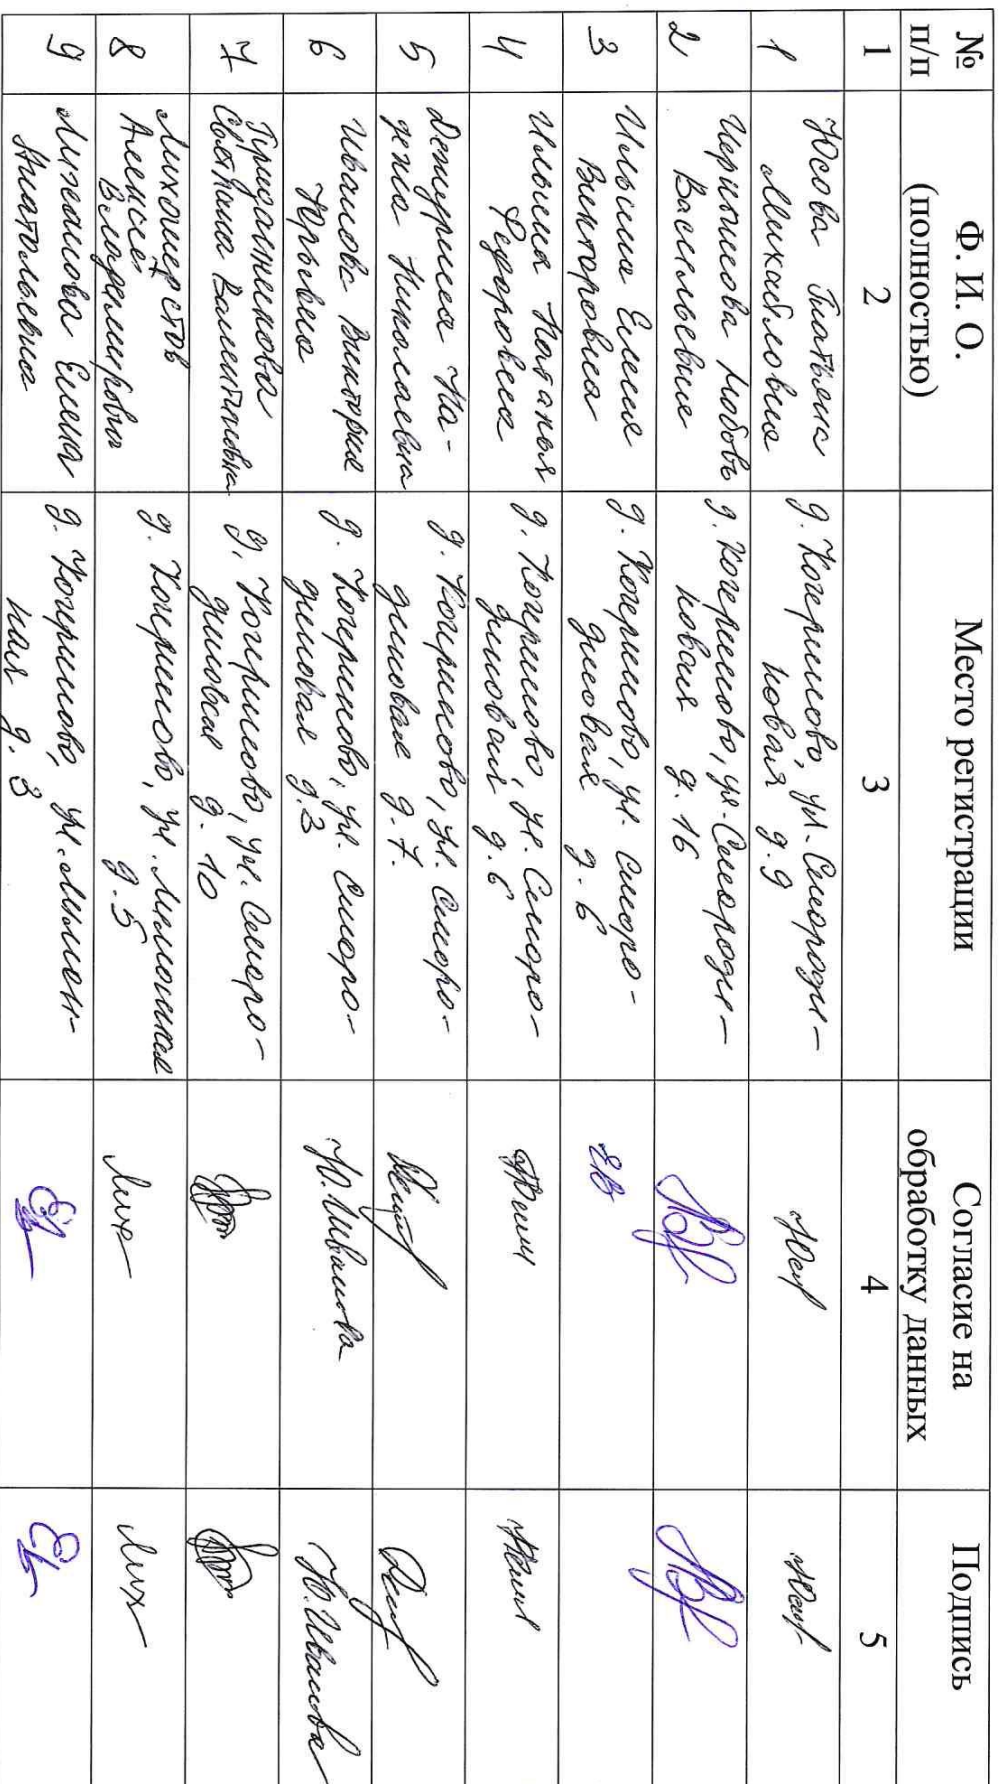 №
п/п
Ф. И. О.
(полностью)
Место регистрации
Согласие на
обработку данных
Подпись
1
2
3
4
5
1
Юсова Татьяна
Михайловна
д. Кочериново, ул. Смороди-
новая д. 9
2
Черникова Любовь
Васильевна
д. Кочериново, ул. Смороди-
новая д. 16
3
Ильина Елена
Викторовна
д. Кочериново, ул. Сморо-
диновая д. 6
ЕВ
4
Ильина Наталья
Федоровна
д. Кочериново, ул. Сморо-
диновая д. 6
5
На-
дежда Николаевна
д. Кочериново, ул. Сморо-
диновая д. 7.
6
Иванова Виктория
Юрьевна
д. Кочериново, ул. Сморо-
диновая д. 3
Ю. Иванова
Ю. Иванова
7
Приданникова
Светлана Валентиновна
д. Кочериново, ул. Сморо-
диновая д. 10
8
Лихошерстов
Алексей
Владимирович
д. Кочериново, ул.
д. 5
Лих
Лих
9
Елена
Анатольевна
д. Кочериново, ул.
ная д. 3